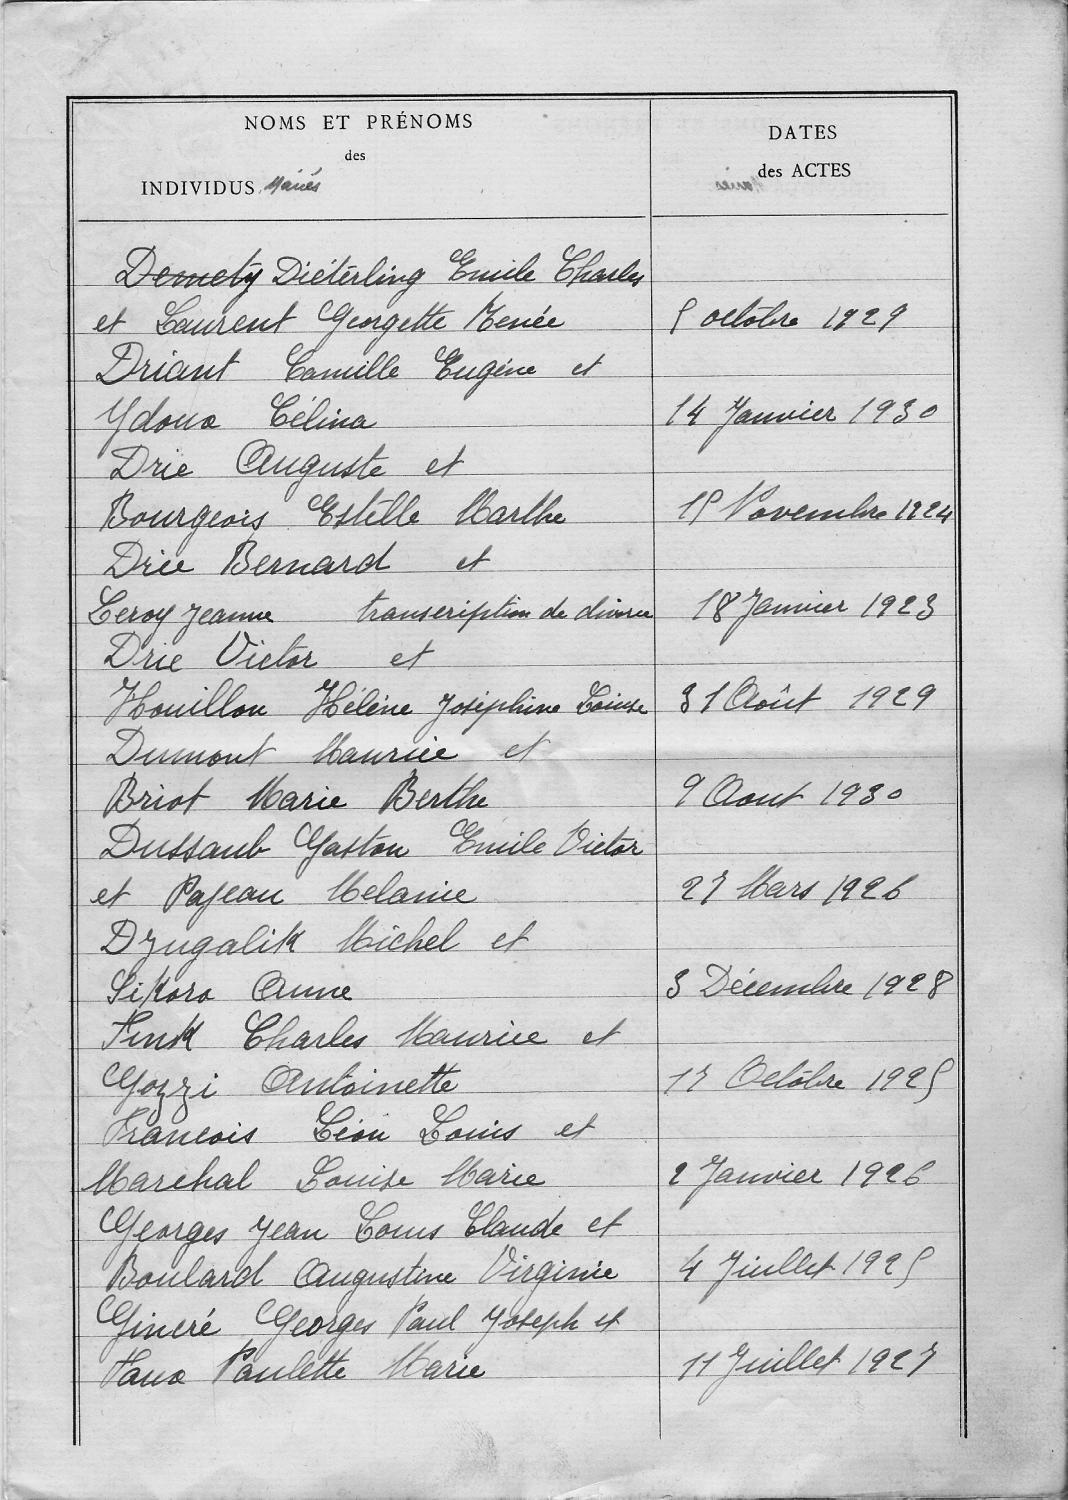 NOMS ET PRÉNOMS
des
INDIVIDUS Mariés
DATES
des ACTES
Demety Diétérling Emile Charles
et Laurent Georgette Renée 5 octobre 1929
Driant Camille Eugène et
Ydoux Célina 14 Janvier 1930
Drie Auguste et
Bourgeois Estelle Marthe 15 Novembre 1924
Drie Bernard et
Leroy Jeanne transcription de divorce 18 Janvier 1923
Drie Victor et
Houillon Hélène Joséphine Louise 31 Août 1929
Dumont Maurice et
Briot Marie Berthe 9 Aout 1930
Dussaub Gaston Emile Victor
et Pajeau Melanie 27 Mars 1926
Dzugalik Michel et
Sikora Anne 3 Décembre 1928
Finsk Charles Maurice et
Gozzi Antoinette 17 Octobre 1925
Francois Léon Louis et
Marchal Louise Marie 2 Janvier 1926
Georges Jean Louis Claude et
Boulard Augustine Virginie 4 Juillet 1925
Gineré Georges Paul Joseph et
Faux Paulette Marie 11 Juillet 1927